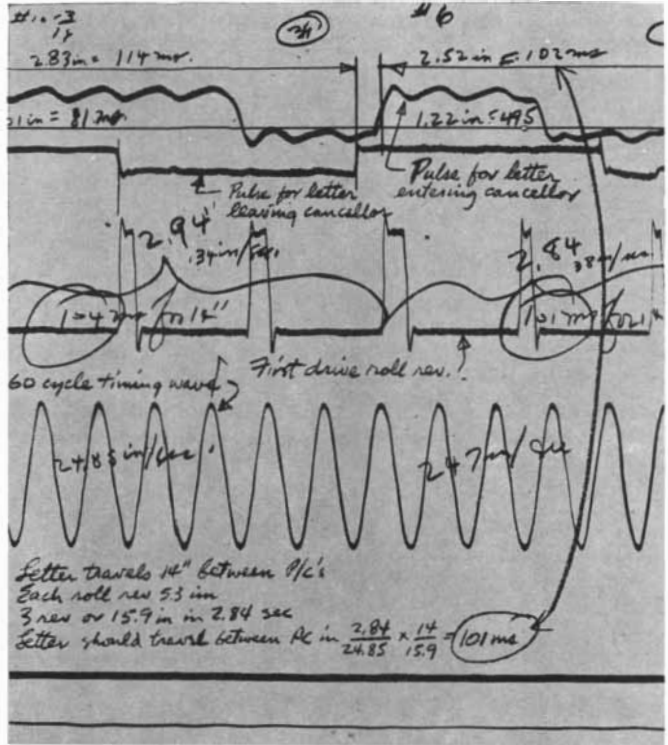 #6
2.83in = 114 ms.
2.52 in = 102 ms
01 in = 81 ms
1.22 in = 49
Pulse for letter
leaving cancellor
Pulse for letter
entering cancellor
2.94"
.34in/sec.
2.84
38in/sec
104 ms for 14"
101 ms for 14
60 cycle timing wave
First drive roll rev.
24.85 in/sec.
247in/sec
Letter travels 14" between P/c's
Each roll rev 5.3 in
3 rev or 15.9 in in 2.84 sec
Letter should travel between PC in 2.84/24.85 x 14/15.9 = 101 ms